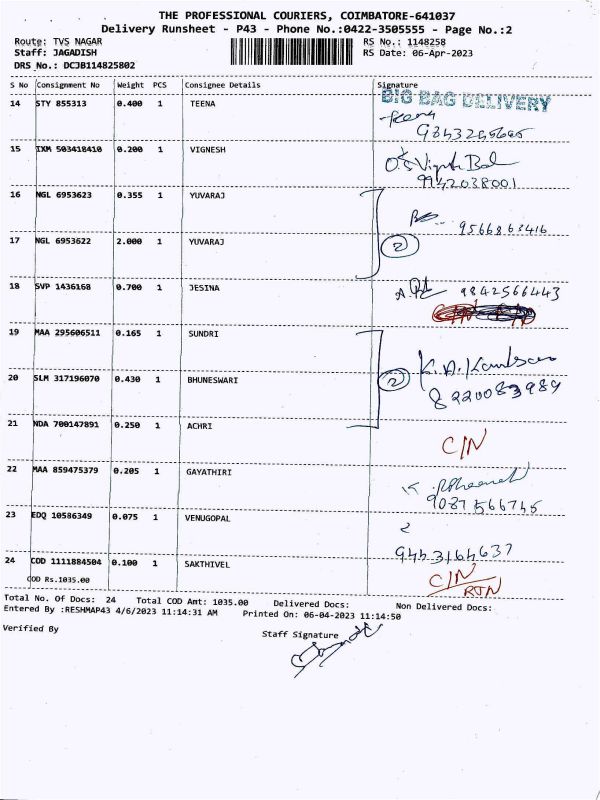 THE PROFESSIONAL COURIERS, COIMBATORE-641037
Delivery Runsheet - P43 - Phone No.:0422-3505555 - Page No.:2
Route: TVS NAGAR RS No.: 1148258
Staff: JAGADISH RS Date: 06-Apr-2023
DRS No.: DCJB114825802
S No Consignment No Weight PCS Consignee Details Signature
BIG BAG DELIVERY
14 STY 855313 0.400 1 TEENA
15 IXM 503418410 0.200 1 VIGNESH
9942038001
16 NGL 6953623 0.355 1 YUVARAJ
9566863416
17 NGL 6953622 2.000 1 YUVARAJ 2
18 SVP 1436168 0.700 1 JESINA 9842566443
19 MAA 295606511 0.165 1 SUNDRI
20 SLM 317196070 0.430 1 BHUNESWARI 2
8220083989
21 NDA 700147891 0.250 1 ACHRI C/N
22 MAA 859475379 0.205 1 GAYATHIRI
23 EDQ 10586349 0.075 1 VENUGOPAL
9443164637
24 COD 1111884504 0.100 1 SAKTHIVEL C/N
COD Rs.1035.00 RTN
Total No. Of Docs: 24 Total COD Amt: 1035.00 Delivered Docs: Non Delivered Docs:
Entered By :RESHMAP43 4/6/2023 11:14:31 AM Printed On: 06-04-2023 11:14:50
Verified By Staff Signature